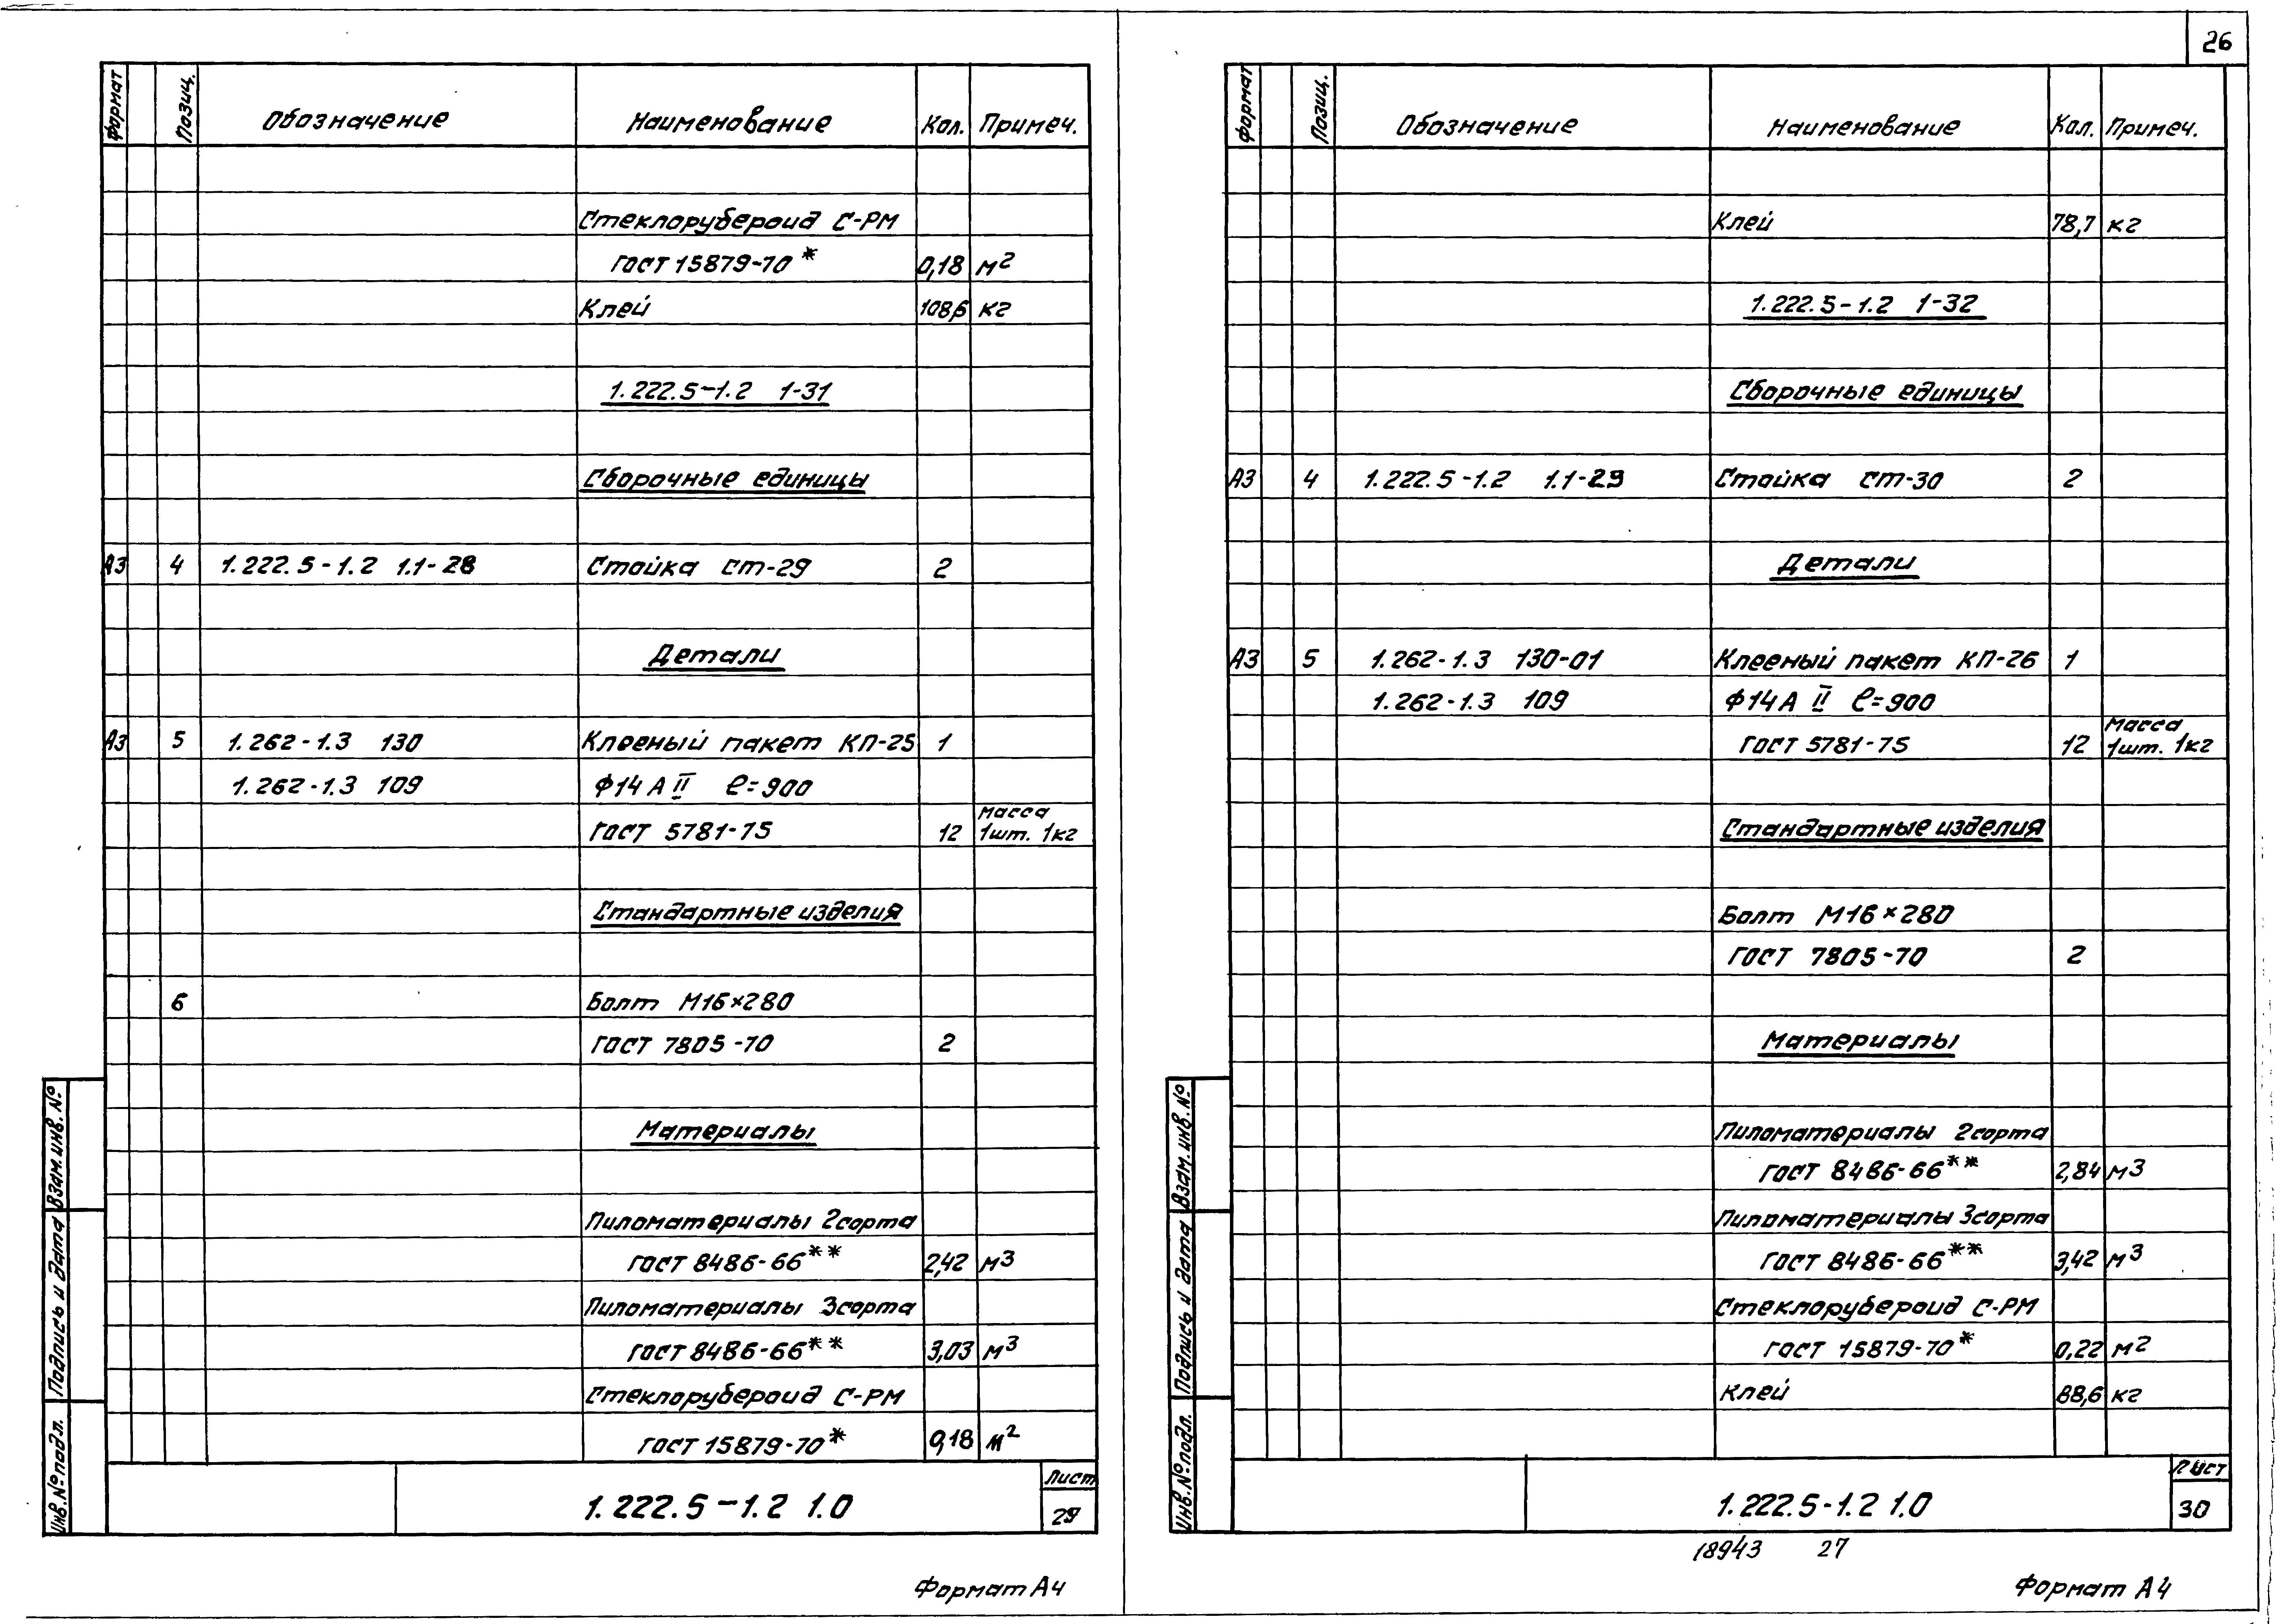 26
Формат Позиц. Обозначение Наименование Кол. Примеч.
Стеклорубероид С-РМ
ГОСТ 15879-70* 0,18 м2
Клей 108,6 кг
1.222.5-1.2 1-31
Сборочные единицы
А3 4 1.222.5-1.2 1.1-28 Стойка Ст-29 2
Детали
А3 5 1.262-1.3 130 Клееный пакет КП-25 1
1.262-1.3 109 Ф14 А II ℓ=900
ГОСТ 5781-75 12 Масса 1шт. 1кг
Стандартные изделия
6 Болт М16×280
ГОСТ 7805-70 2
Материалы
Пиломатериалы 2сорта
ГОСТ 8486-66** 2,42 м3
Пиломатериалы 3сорта
ГОСТ 8486-66** 3,03 м3
Стеклорубероид С-РМ
ГОСТ 15879-70* 0,18 м2
Инв.№подл. Подпись и дата Взам.инв.№
1.222.5-1.2 1.0
Лист
29
Формат А4
Формат Позиц. Обозначение Наименование Кол. Примеч.
Клей 78,7 кг
1.222.5-1.2 1-32
Сборочные единицы
А3 4 1.222.5-1.2 1.1-29 Стойка Ст-30 2
Детали
А3 5 1.262-1.3 130-01 Клееный пакет КП-26 1
1.262-1.3 109 Ф14А II ℓ=900
ГОСТ 5781-75 12 Масса 1шт. 1кг
Стандартные изделия
Болт М16×280
ГОСТ 7805-70 2
Материалы
Пиломатериалы 2сорта
ГОСТ 8486-66** 2,84 м3
Пиломатериалы 3сорта
ГОСТ 8486-66** 3,42 м3
Стеклорубероид С-РМ
ГОСТ 15879-70* 0,22 м2
Клей 88,6 кг
Инв.№подл. Подпись и дата Взам.инв.№
1.222.5-1.2 1.0
Лист
30
18943 27
Формат А4